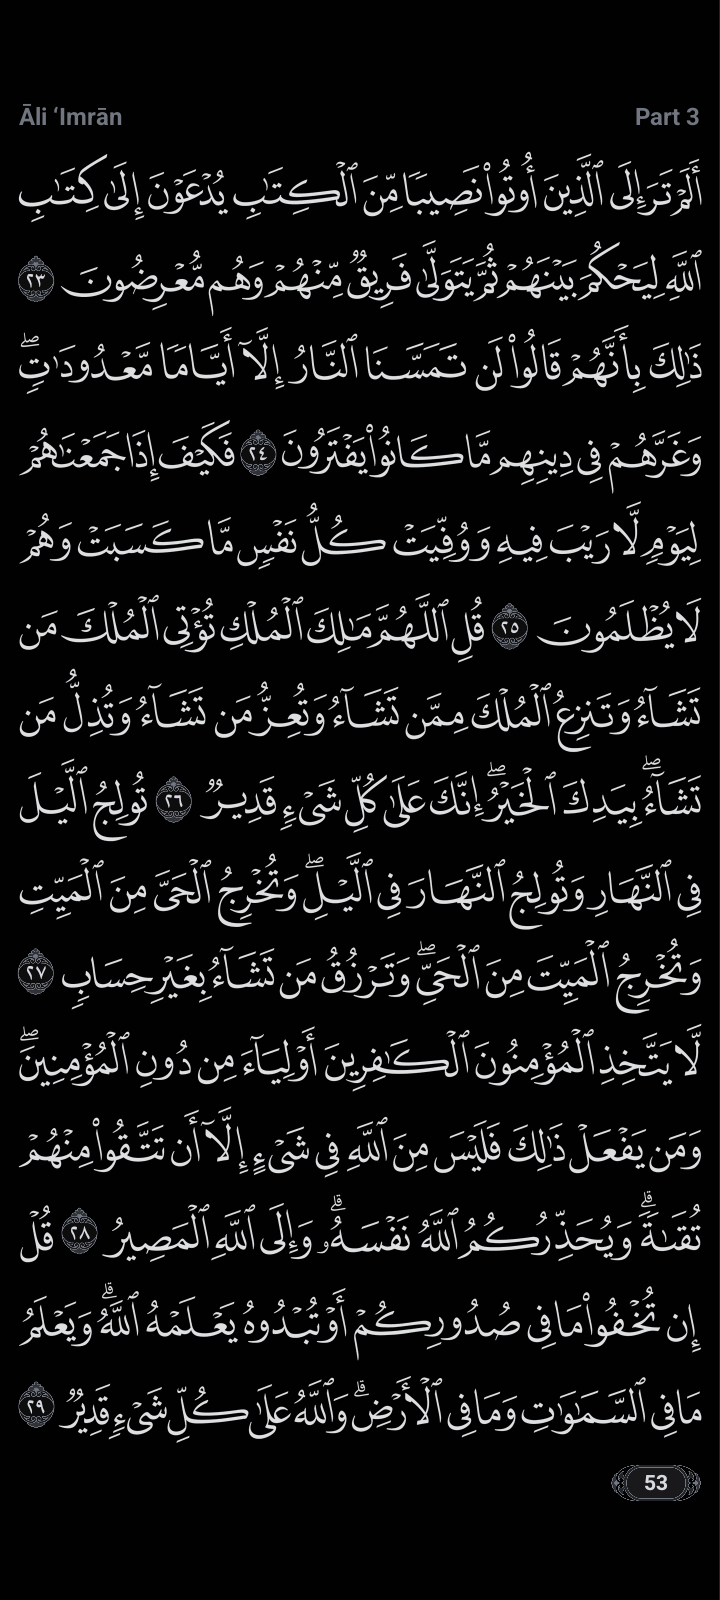 Āli ‘Imrān
Part 3
أَلَمْ تَرَ إِلَى ٱلَّذِينَ أُوتُوا۟ نَصِيبًا مِّنَ ٱلْكِتَـٰبِ يُدْعَوْنَ إِلَىٰ كِتَـٰبِ
ٱللَّهِ لِيَحْكُمَ بَيْنَهُمْ ثُمَّ يَتَوَلَّىٰ فَرِيقٌ مِّنْهُمْ وَهُم مُّعْرِضُونَ ٢٣
ذَٰلِكَ بِأَنَّهُمْ قَالُوا۟ لَن تَمَسَّنَا ٱلنَّارُ إِلَّآ أَيَّامًا مَّعْدُودَٰتٍ ۖ
وَغَرَّهُمْ فِى دِينِهِم مَّا كَانُوا۟ يَفْتَرُونَ ٢٤ فَكَيْفَ إِذَا جَمَعْنَـٰهُمْ
لِيَوْمٍ لَّا رَيْبَ فِيهِ وَوُفِّيَتْ كُلُّ نَفْسٍ مَّا كَسَبَتْ وَهُمْ
لَا يُظْلَمُونَ ٢٥ قُلِ ٱللَّهُمَّ مَـٰلِكَ ٱلْمُلْكِ تُؤْتِى ٱلْمُلْكَ مَن
تَشَآءُ وَتَنزِعُ ٱلْمُلْكَ مِمَّن تَشَآءُ وَتُعِزُّ مَن تَشَآءُ وَتُذِلُّ مَن
تَشَآءُ ۖ بِيَدِكَ ٱلْخَيْرُ ۖ إِنَّكَ عَلَىٰ كُلِّ شَىْءٍ قَدِيرٌ ٢٦ تُولِجُ ٱلَّيْلَ
فِى ٱلنَّهَارِ وَتُولِجُ ٱلنَّهَارَ فِى ٱلَّيْلِ ۖ وَتُخْرِجُ ٱلْحَىَّ مِنَ ٱلْمَيِّتِ
وَتُخْرِجُ ٱلْمَيِّتَ مِنَ ٱلْحَىِّ ۖ وَتَرْزُقُ مَن تَشَآءُ بِغَيْرِ حِسَابٍ ٢٧
لَّا يَتَّخِذِ ٱلْمُؤْمِنُونَ ٱلْكَـٰفِرِينَ أَوْلِيَآءَ مِن دُونِ ٱلْمُؤْمِنِينَ ۖ
وَمَن يَفْعَلْ ذَٰلِكَ فَلَيْسَ مِنَ ٱللَّهِ فِى شَىْءٍ إِلَّآ أَن تَتَّقُوا۟ مِنْهُمْ
تُقَىٰةً ۗ وَيُحَذِّرُكُمُ ٱللَّهُ نَفْسَهُۥ ۗ وَإِلَى ٱللَّهِ ٱلْمَصِيرُ ٢٨ قُلْ
إِن تُخْفُوا۟ مَا فِى صُدُورِكُمْ أَوْ تُبْدُوهُ يَعْلَمْهُ ٱللَّهُ ۗ وَيَعْلَمُ
مَا فِى ٱلسَّمَـٰوَٰتِ وَمَا فِى ٱلْأَرْضِ ۗ وَٱللَّهُ عَلَىٰ كُلِّ شَىْءٍ قَدِيرٌ ٢٩
53